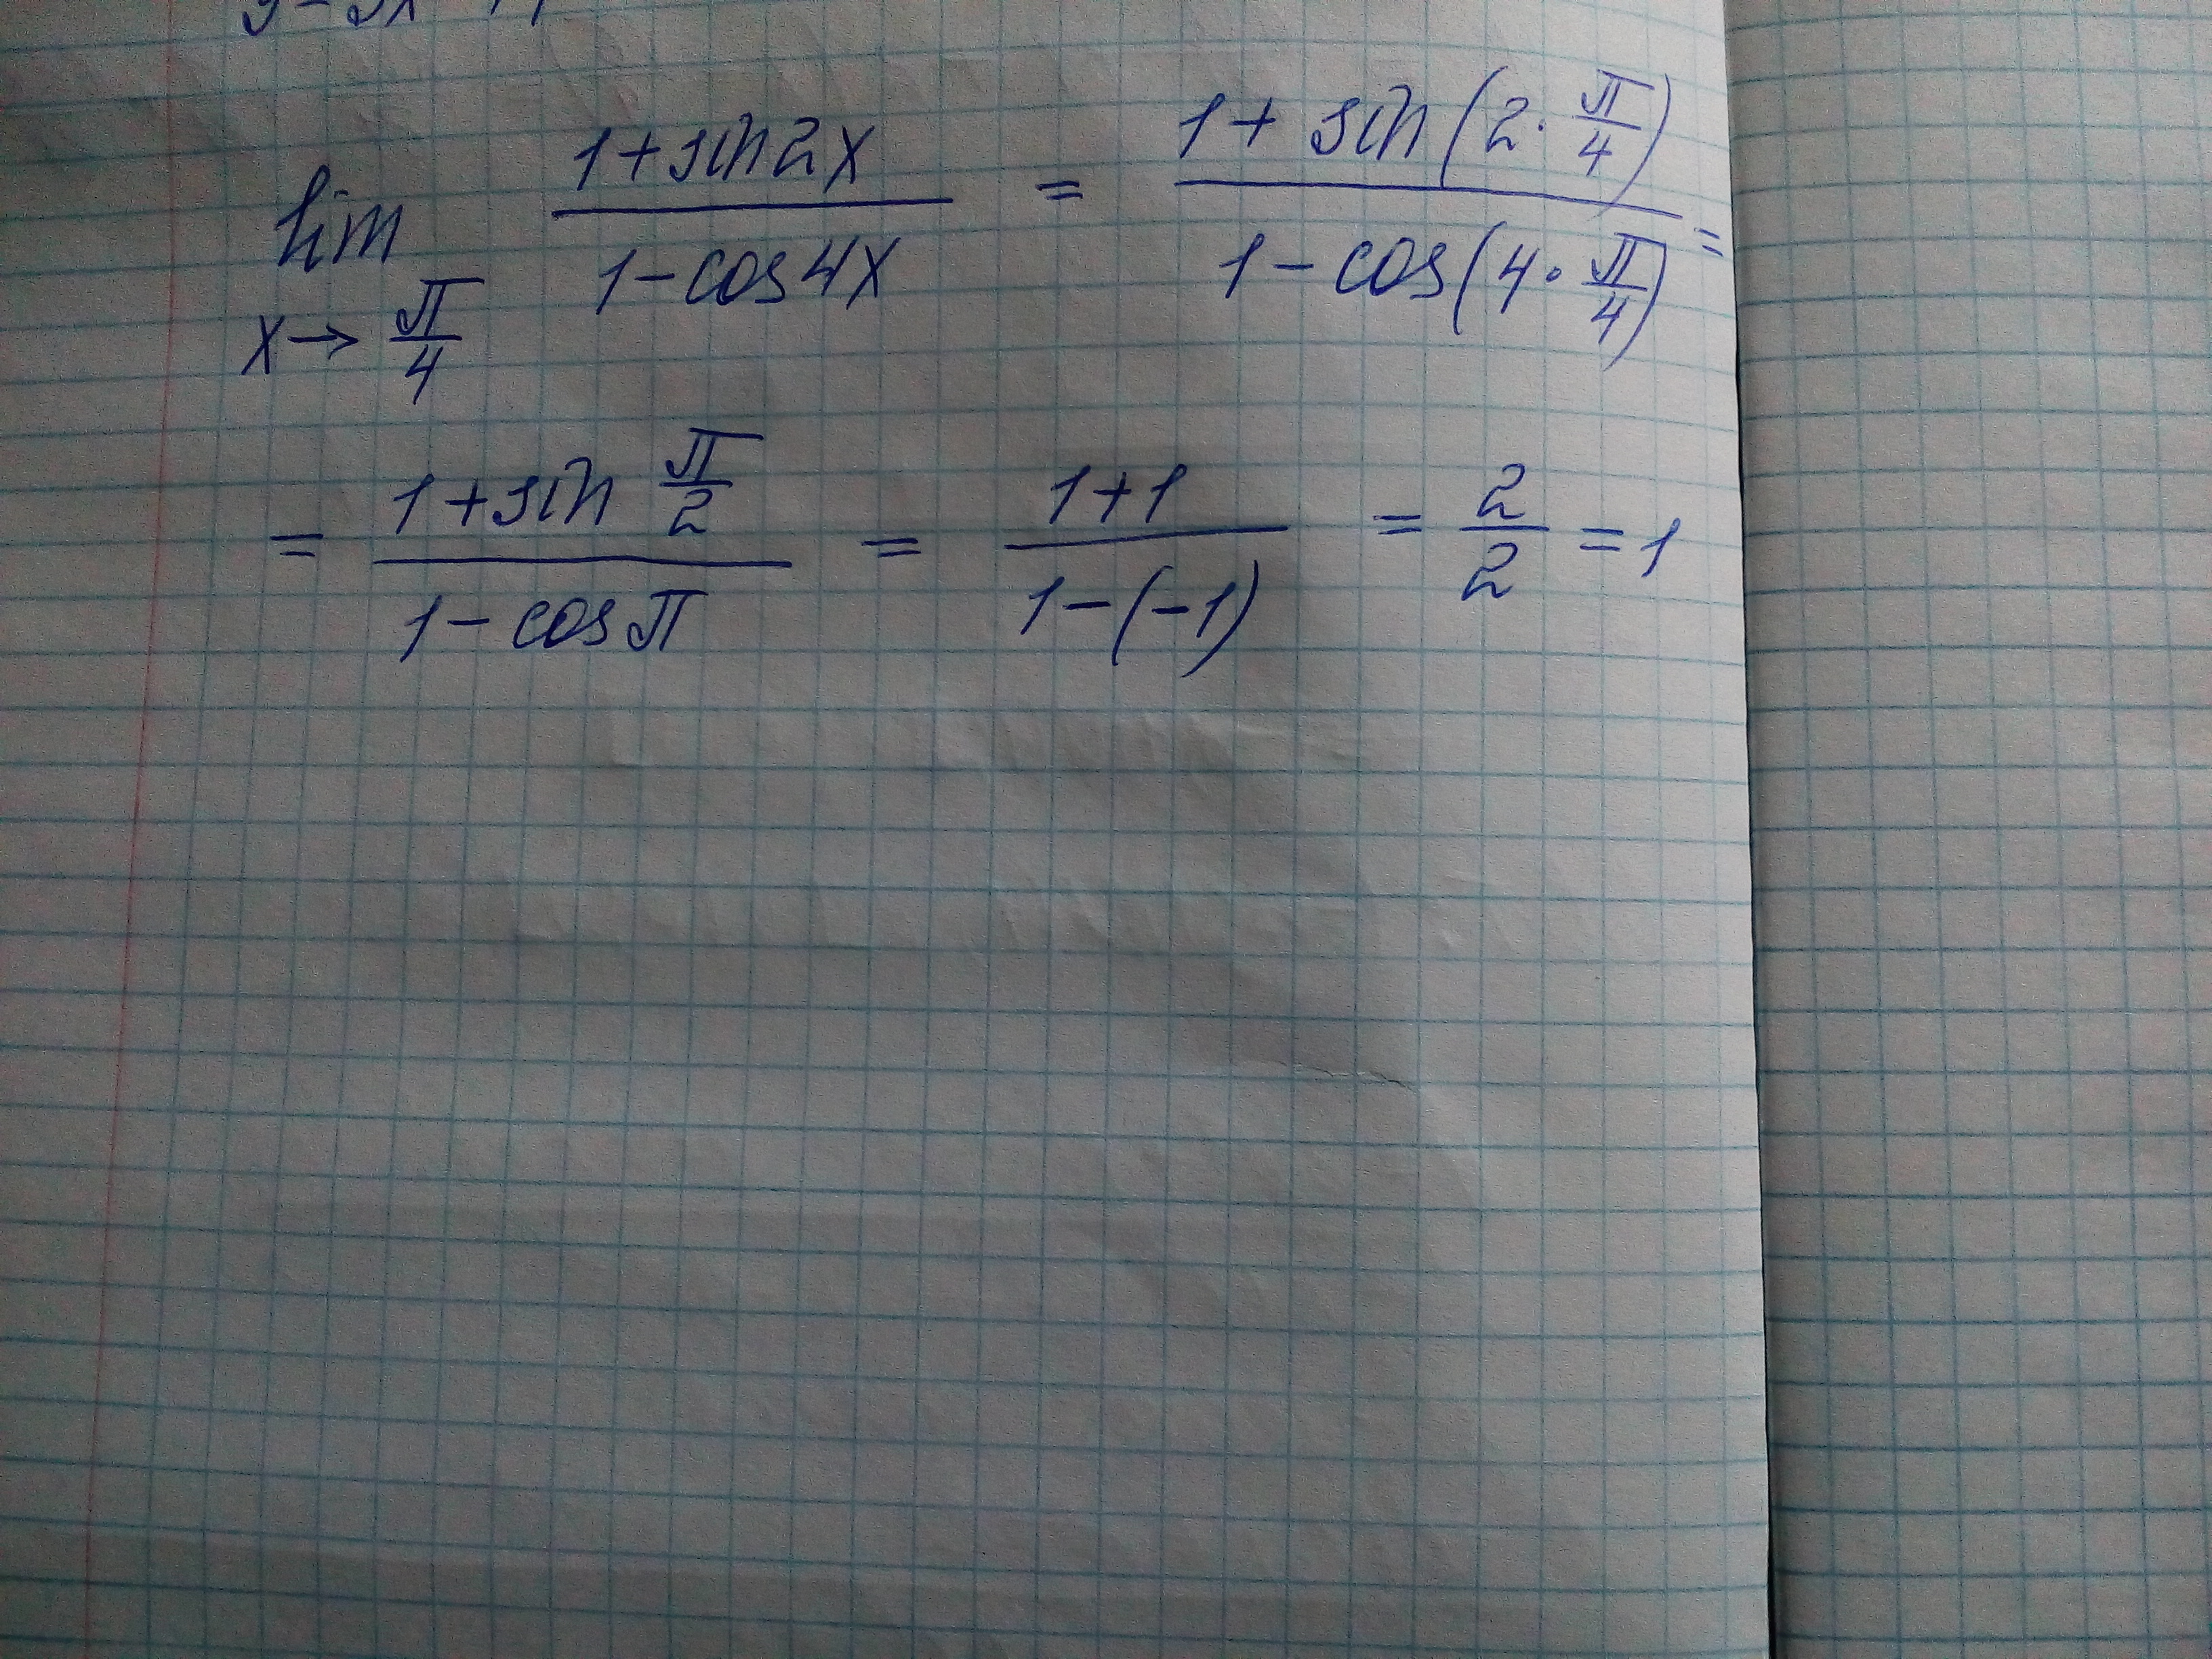 lim x→π/4 (1+sin2x)/(1-cos4x) = (1+sin(2·π/4))/(1-cos(4·π/4)) =
= (1+sin π/2)/(1-cosπ) = (1+1)/(1-(-1)) = 2/2 = 1